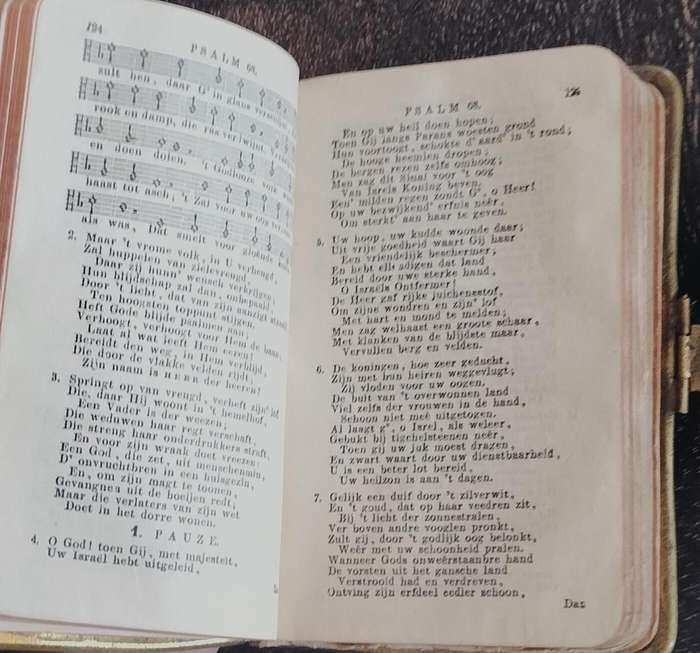 124
PSALM 68.
zult hen, daar G' in glans verschijnt,
rook en damp, die ras verdwijnt,
en doen dolen. 't Godloze volk
haast tot asch; 't Zal voor uw oog ver
als was, Dat smelt voor gloênde
2. Maar 't vrome volk, in U verheugd,
Zal huppelen van zielevreugd,
Daar zij hunn' wensch verkrijgen;
Hun blijdschap zal dan, onbepaald,
Door 't licht, dat van zijn aanzigt straalt,
Ten hoogsten toppunt stijgen.
Heft Gode blijde psalmen aan,
Verhoogt, verhoogt voor Hem de baan,
Laat al wat leeft Hem eeren!
Bereidt den weg, in Hem verblijd,
Die door de vlakke velden rijdt,
Zijn naam is HEER der heeren!
3. Springt op van vreugd, verheft zijn' lof,
Die, daar Hij woont in 't hemelhof,
Een Vader is der weezen;
Die weduwen haar regt verschaft,
Die streng haar onderdrukkers straft,
En voor zijn wraak doet vreezen:
Een God, die zet, uit menschenmin,
D' onvruchtbren in een huisgezin,
En, om zijn magt te toonen,
Gevangnen uit de boeijen redt,
Maar die verlaters van zijn wet
Doet in het dorre wonen.
1. PAUZE.
4. O God! toen Gij, met majesteit,
Uw Israël hebt uitgeleid,
PSALM 68.
125
En op uw heil doen hopen;
Toen Gij langs Parans woesten grond
Hun voortoogt, schokte d' aard' in 't rond;
De hooge heemlen dropen;
De bergen rezen zelfs omhoog;
Men zag dit Sinaï voor 't oog
Van Isrels Koning beven.
Een' milden regen zondt G', o Heer!
Op uw bezwijkend' erfnis neêr,
Om sterkt' aan haar te geven.
5. Uw hoop, uw kudde woonde daar;
Uit vrije goedheid waart Gij haar
Een vriendelijk beschermer;
En hebt ellendigen dat land
Bereid door uwe sterke hand,
O Israëls Ontfermer!
De Heer gaf rijke juichensstof,
Om zijne wondren en zijn' lof
Met hart en mond te melden;
Men zag welhaast een groote schaar,
Met klanken van de blijdste maar,
Vervullen berg en velden.
6. De koningen, hoe zeer geducht,
Zijn met hun heiren weggevlugt;
Zij vloden voor uw oogen.
De buit van 't overwonnen land
Viel zelfs der vrouwen in de hand,
Schoon niet meê uitgetogen.
Al laagt g', o Isrel, als weleer,
Gebukt bij tigchelsteenen neêr,
Toen gij uw juk moest dragen,
En zwart waart door uw dienstbaarheid,
U is een beter lot bereid,
Uw heilzon is aan 't dagen.
7. Gelijk een duif door 't zilverwit,
En 't goud, dat op haar veedren zit,
Bij 't licht der zonnestralen,
Ver boven andre vooglen pronkt,
Zult gij, door 't godlijk oog belonkt,
Weêr met uw schoonheid pralen.
Wanneer Gods onweêrstaanbre hand
De vorsten uit het gansche land
Verstrooid had en verdreven,
Ontving zijn erfdeel eedler schoon,
Dan